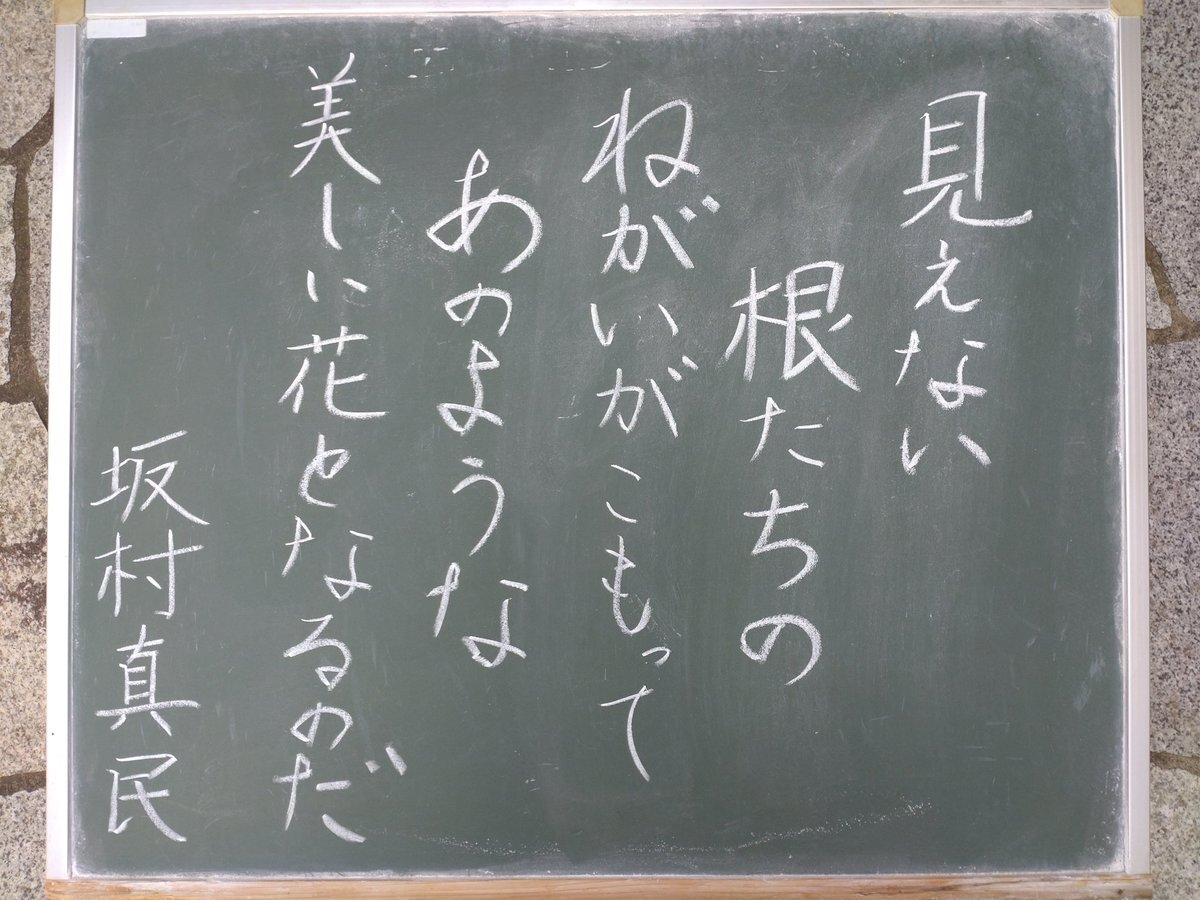 見えない
根たちの
ねがいがこもって
あのような
美しい花となるのだ
坂村真民